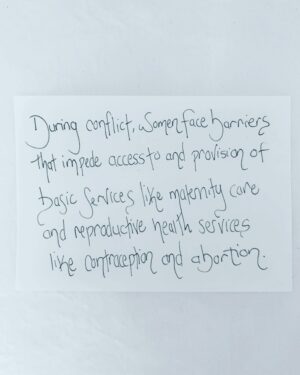 During conflict, women face barriers
that impede access to and provision of
basic services like maternity care
and reproductive health services
like contraception and abortion.